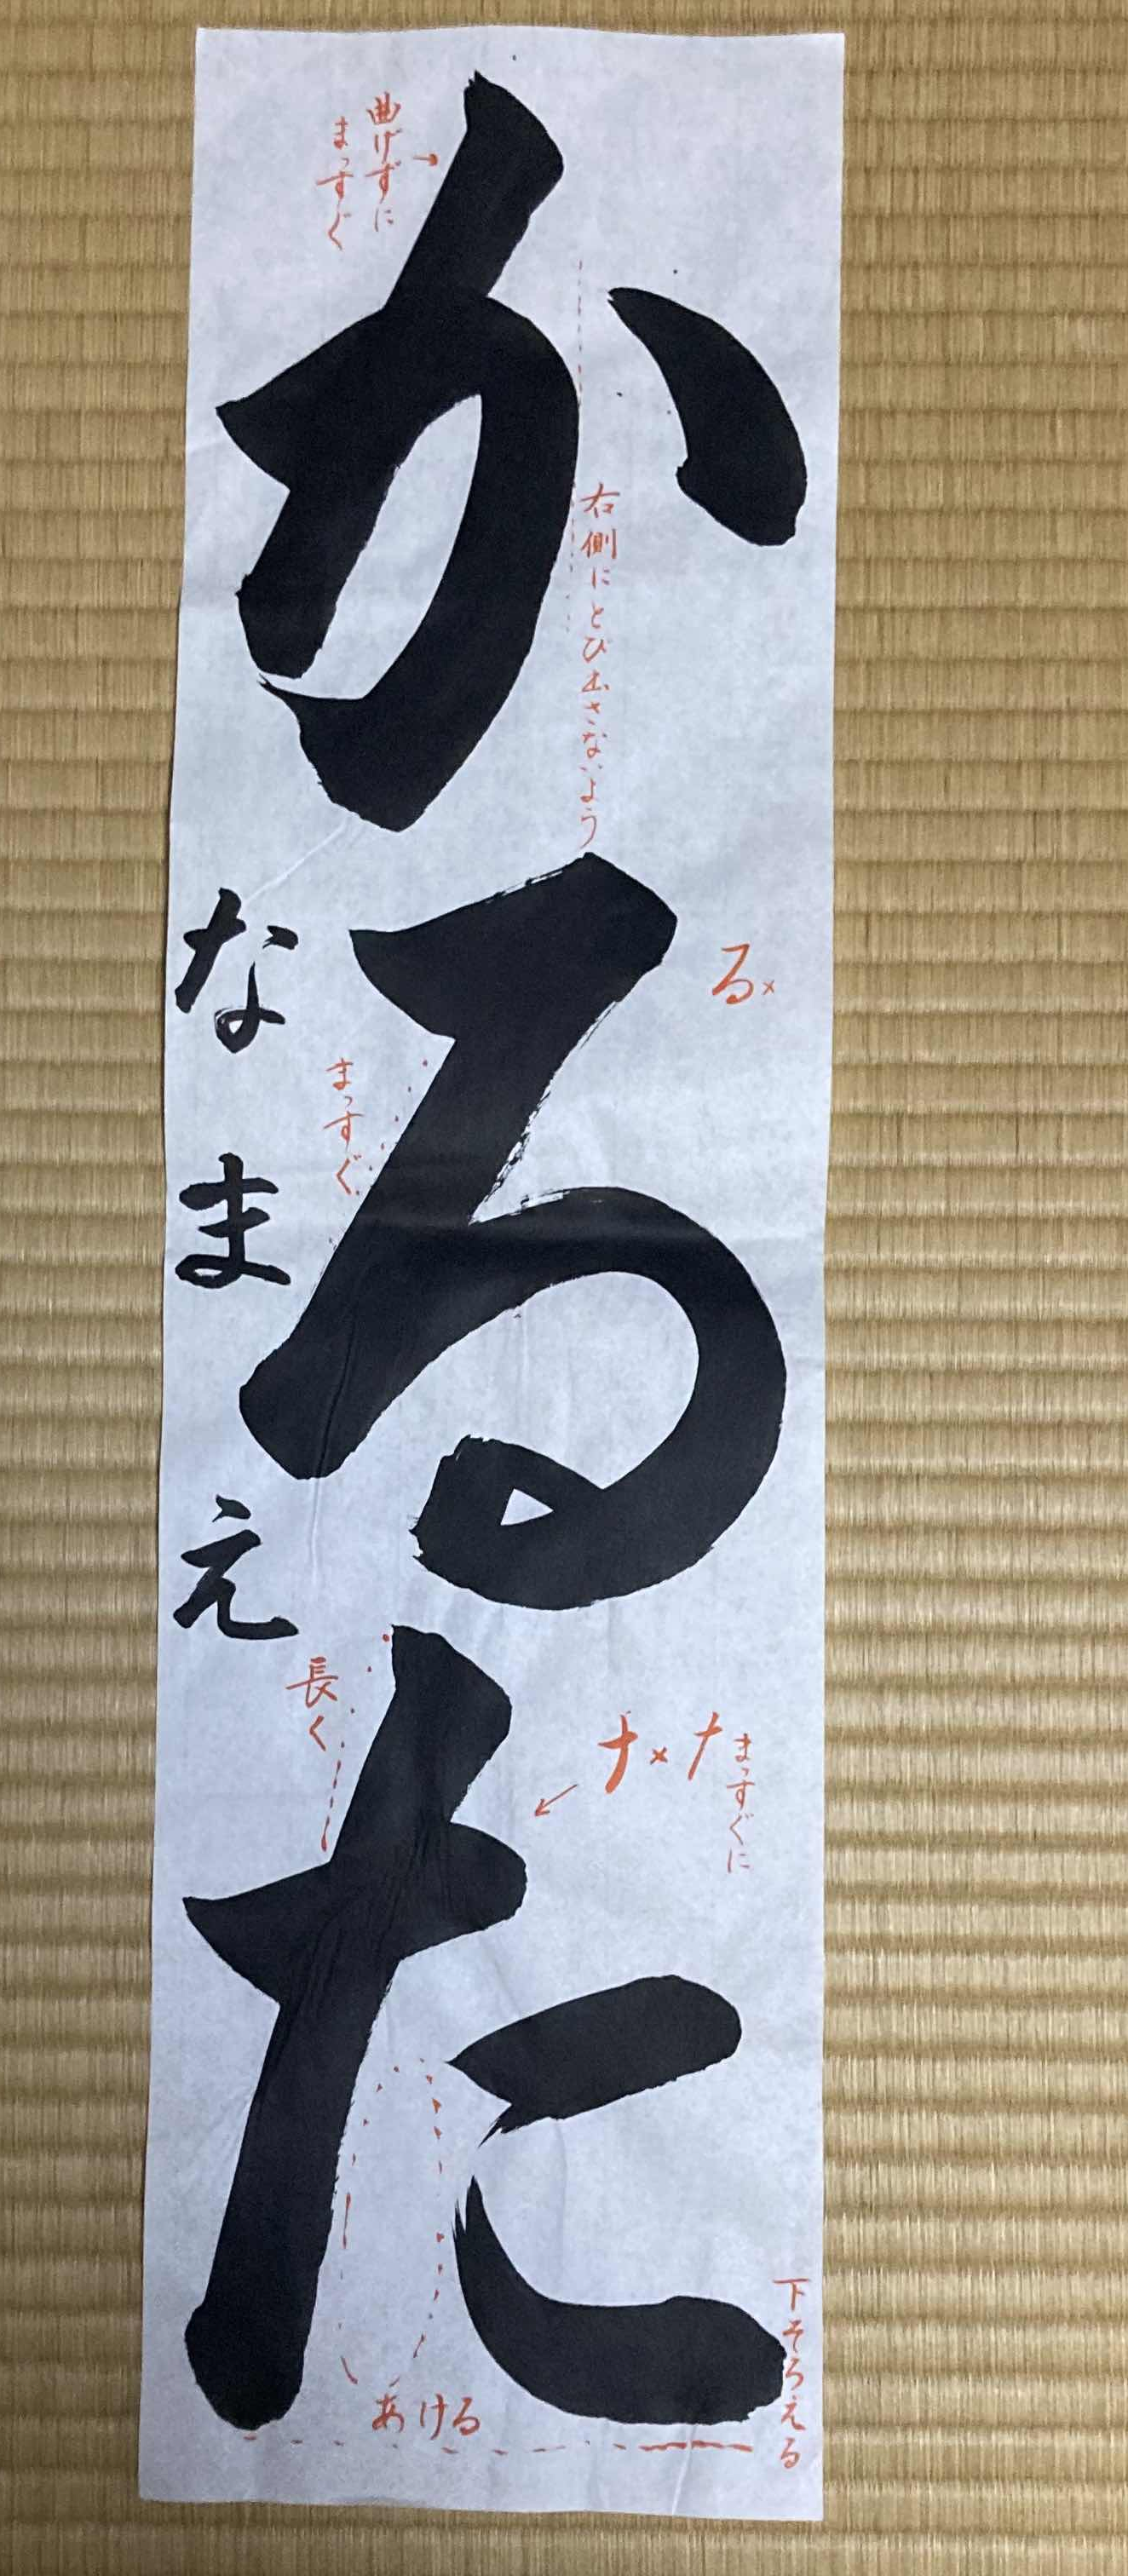 かるた
なまえ
曲げずに
まっすぐ
右側にとび出さないよう
る×
まっすぐ
長く
ナ×ナ
まっすぐに
あける
下そろえる